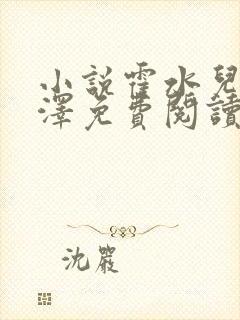 小說霍水兒
澤免費閱讀
沈嚴